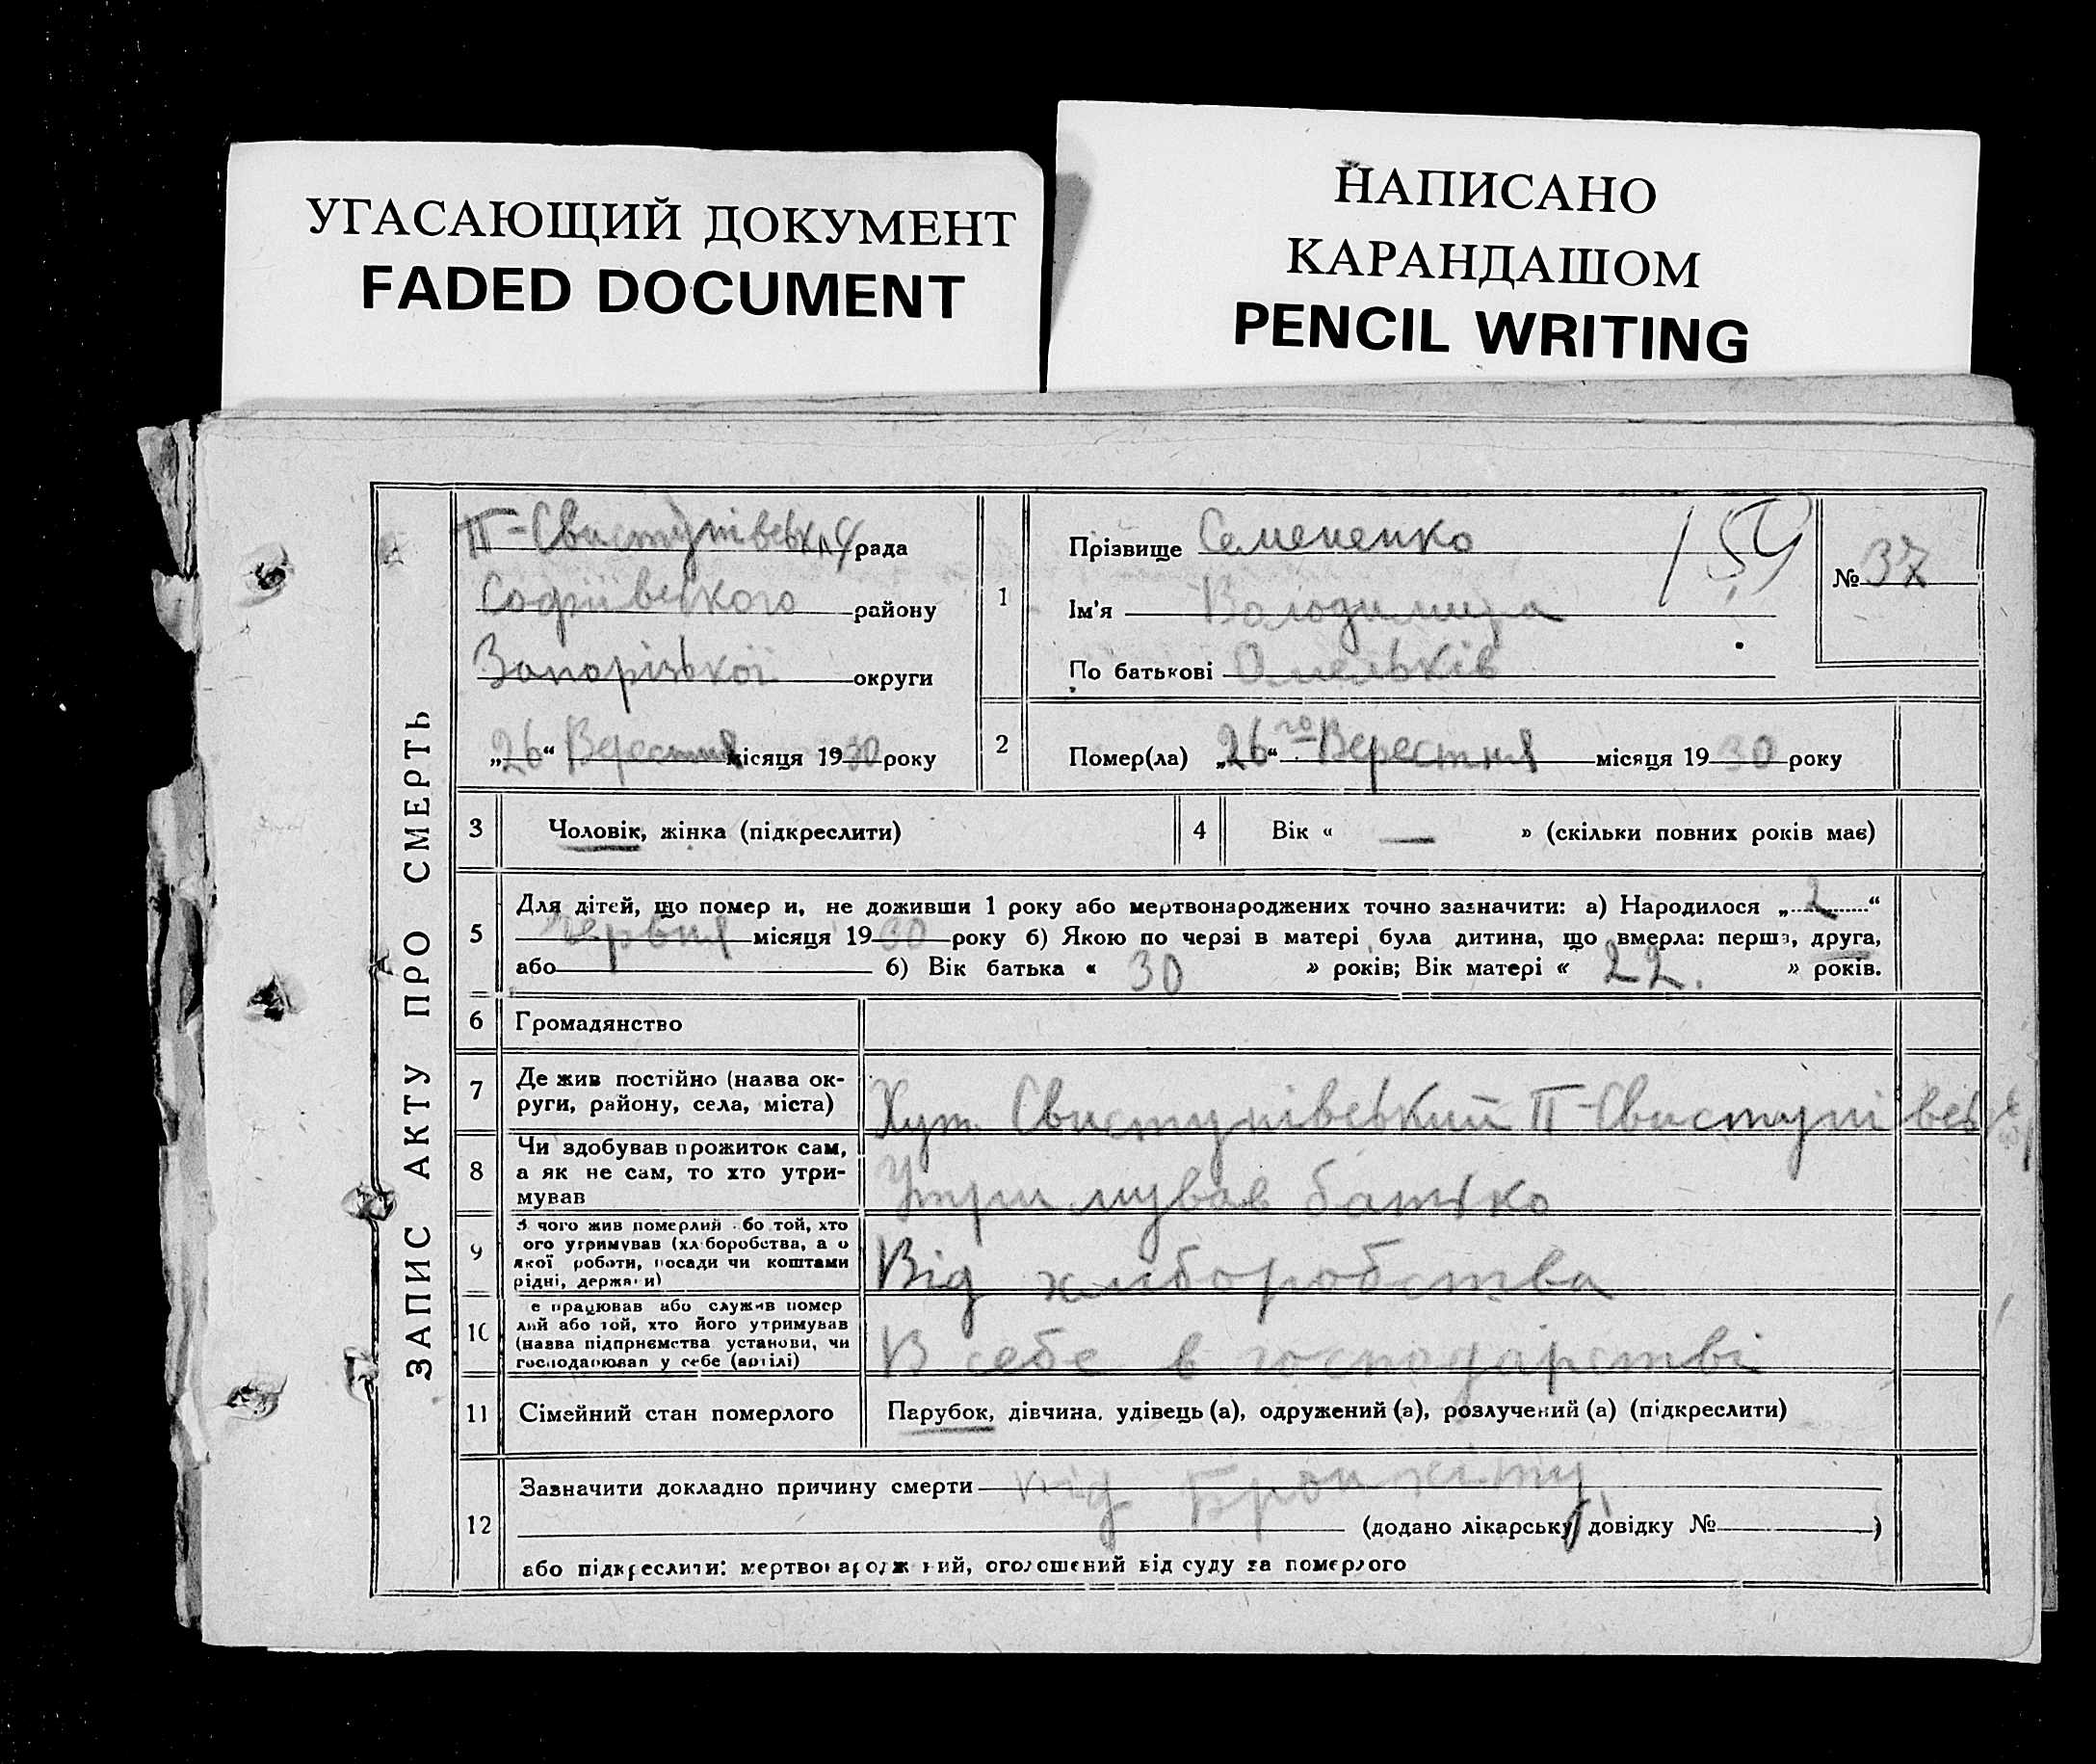 УГАСАЮЩИЙ ДОКУМЕНТ
FADED DOCUMENT
НАПИСАНО
КАРАНДАШОМ
PENCIL WRITING
ЗАПИС АКТУ ПРО СМЕРТЬ
П-Свистунівська рада
Софіївского району
Запорізької округи
„26“ Верестня місяця 1930 року
1
Прізвище Семененко
159
Ім'я Володимира
По батькові Омельків
№ 37
2
Помер(ла) „26го“ Верестня місяця 1930 року
3 Чоловік, жінка (підкреслити)
4 Вік « — » (скільки повних років має)
5 Для дітей, що помер и, не доживши 1 року або мертвонароджених точно зазначити: а) Народилося „2“
червня місяця 1930 року б) Якою по черзі в матері була дитина, що вмерла: перша, друга,
або б) Вік батька « 30 » років; Вік матері « 22. » років.
6 Громадянство
7 Де жив постійно (назва ок-
руги, району, села, міста)
Хут. Свистунівський П-Свистунівсь
8 Чи здобував прожиток сам,
а як не сам, то хто утри-
мував
Утримував батько
9 З чого жив померлий бо той, хто
ого утримував (хл боробства, а о
якої роботи, посади чи коштами
рідні, держа и)
Від хліборобства
10 е працював або служив помер
лий або той, хто його утримував
(назва підприємства установи, чи
господарював у себе (артілі)
В себе в господарстві
11 Сімейний стан померлого
Парубок, дівчина, удівець (а), одружений (а), розлучений (а) (підкреслити)
12 Зазначити докладно причину смерти від Бронхіту
(додано лікарську довідку № )
або підкреслити: мертвонародж ний, оголошений від суду за померлого